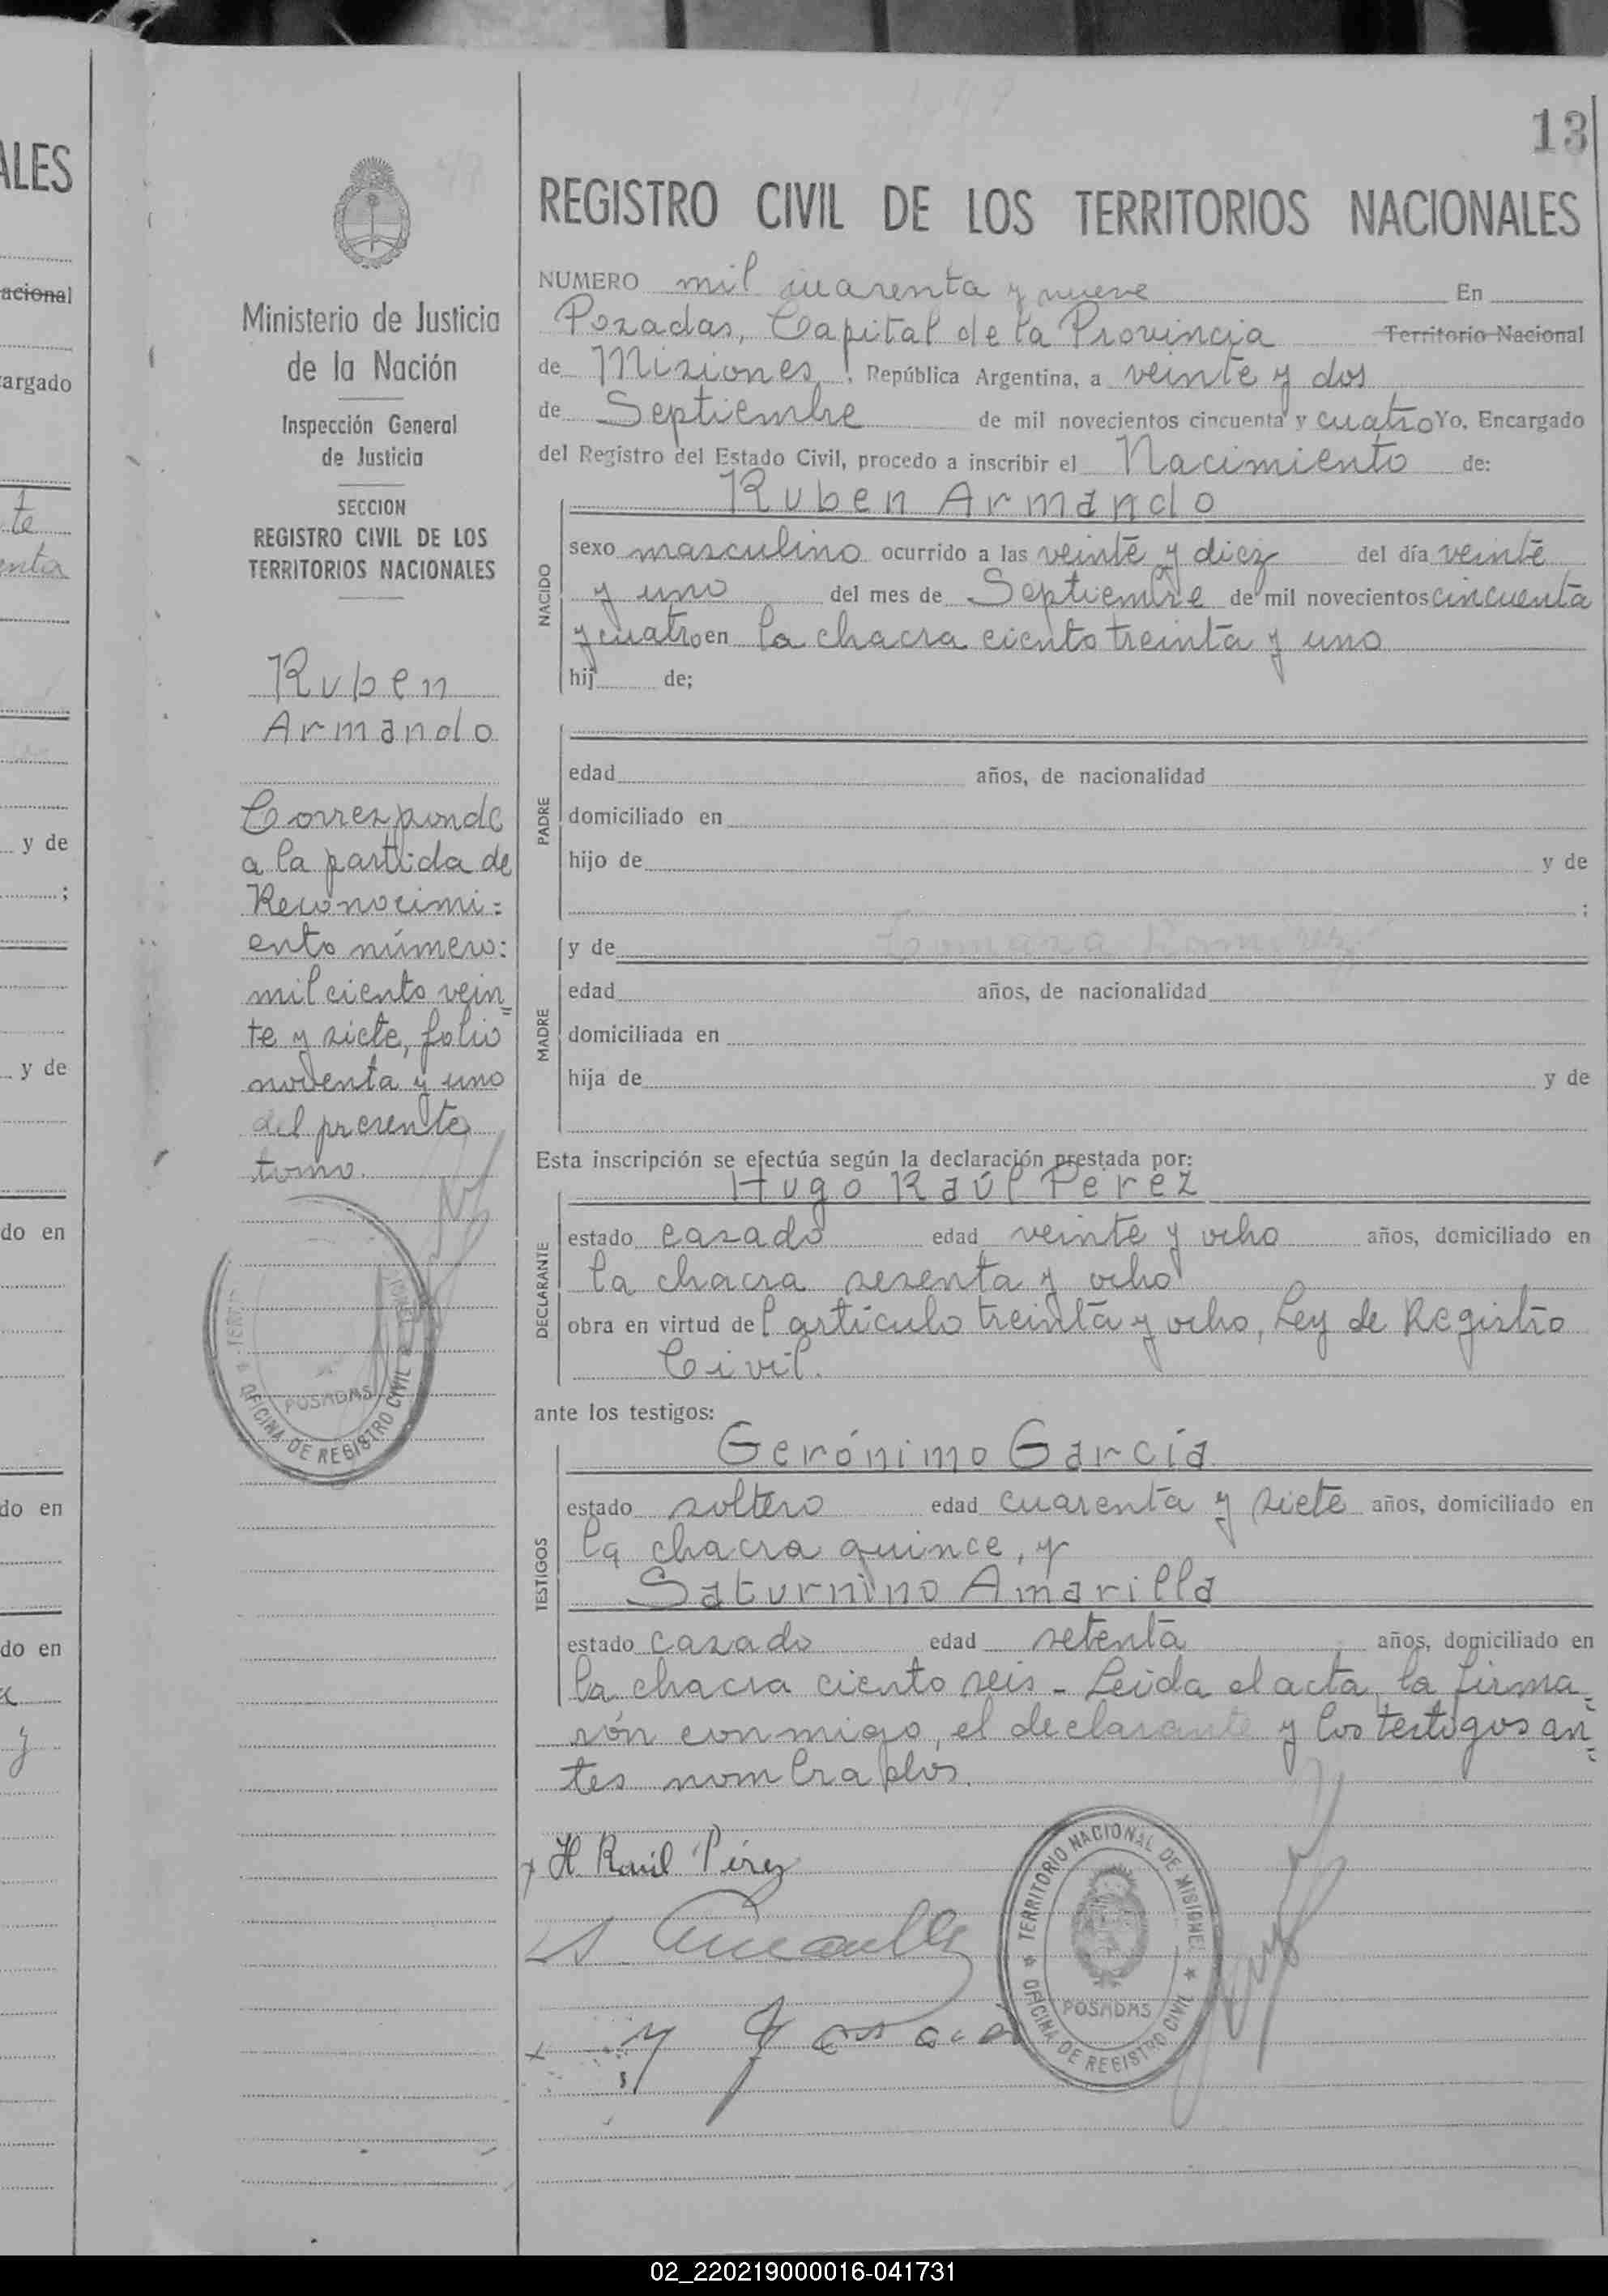 13
REGISTRO CIVIL DE LOS TERRITORIOS NACIONALES
Ministerio de Justicia
de la Nación
Inspección General
de Justicia
SECCION
REGISTRO CIVIL DE LOS
TERRITORIOS NACIONALES
Ruben
Armando
Corresponde
a la partida de
Reconocimi=
ento número:
mil ciento vein=
te y siete, folio
noventa y uno
del presente
tomo.
POSADAS
OFICINA DE REGISTRO CIVIL
NUMERO mil cuarenta y nueve En
Posadas, Capital de la Provincia Territorio Nacional
de Misiones, República Argentina, a veinte y dos
de Septiembre de mil novecientos cincuenta y cuatro Yo, Encargado
del Registro del Estado Civil, procedo a inscribir el Nacimiento de:
Ruben Armando
NACIDO
sexo masculino ocurrido a las veinte y diez del día veinte
y uno del mes de Septiembre de mil novecientos cincuenta
y cuatro en la chacra ciento treinta y uno
hij de;
PADRE
edad años, de nacionalidad
domiciliado en
hijo de y de
;
y de
MADRE
edad años, de nacionalidad
domiciliada en
hija de y de
Esta inscripción se efectúa según la declaración prestada por:
Hugo Raúl Perez
DECLARANTE
estado casado edad veinte y ocho años, domiciliado en
la chacra sesenta y ocho
obra en virtud del artículo treinta y ocho, Ley de Registro
Civil.
ante los testigos:
Gerónimo García
TESTIGOS
estado soltero edad cuarenta y siete años, domiciliado en
la chacra quince, y
Saturnino Amarilla
estado casado edad setenta años, domiciliado en
la chacra ciento seis - Leida el acta, la firma=
rón conmigo, el declarante y los testigos an=
tes nombrados.
H Raúl Pérez
TERRITORIO NACIONAL DE MISIONES
POSADAS
OFICINA DE REGISTRO CIVIL
ALES
acional
argado
te
enta
y de
;
y de
do en
do en
do en
y
02_220219000016-041731